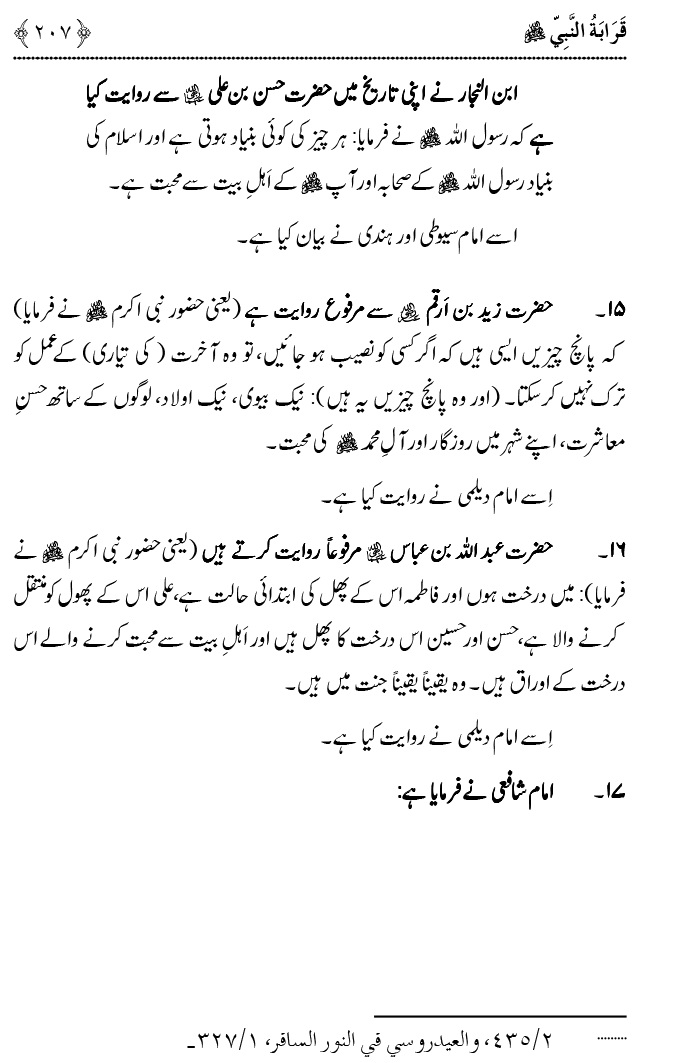 قَرَابَةُ النَّبِيِّ ﷺ ﴿۲۰۷﴾
ابن النجار نے اپنی تاریخ میں حضرت حسن بن علی رضی اللہ عنہما سے روایت کیا
ہے کہ رسول اللہ ﷺ نے فرمایا: ہر چیز کی کوئی بنیاد ہوتی ہے اور اسلام کی
بنیاد رسول اللہ ﷺ کے صحابہ اور آپ ﷺ کے اَہلِ بیت سے محبت ہے۔
اسے امام سیوطی اور ہندی نے بیان کیا ہے۔
۱۵۔ حضرت زید بن اَرقم رضی اللہ عنہ سے مرفوع روایت ہے (یعنی حضور نبی اکرم ﷺ نے فرمایا)
کہ پانچ چیزیں ایسی ہیں کہ اگر کسی کو نصیب ہو جائیں، تو وہ آخرت (کی تیاری) کے عمل کو
ترک نہیں کر سکتا۔ (اور وہ پانچ چیزیں یہ ہیں): نیک بیوی، نیک اولاد، لوگوں کے ساتھ حسنِ
معاشرت، اپنے شہر میں روزگار اور آلِ محمد ﷺ کی محبت۔
اِسے امام دیلمی نے روایت کیا ہے۔
۱۶۔ حضرت عبد اللہ بن عباس رضی اللہ عنہما مرفوعاً روایت کرتے ہیں (یعنی حضور نبی اکرم ﷺ نے
فرمایا): میں درخت ہوں اور فاطمہ اس کے پھل کی ابتدائی حالت ہے، علی اس کے پھول کو منتقل
کرنے والا ہے، حسن اور حسین اس درخت کا پھل ہیں اور اَہلِ بیت سے محبت کرنے والے اس
درخت کے اوراق ہیں۔ وہ یقیناً یقیناً جنت میں ہیں۔
اِسے امام دیلمی نے روایت کیا ہے۔
۱۷۔ امام شافعی نے فرمایا ہے:
......... ٢/٤٣٥، والعيدروسي في النور السافر، ١/٣٢٧۔